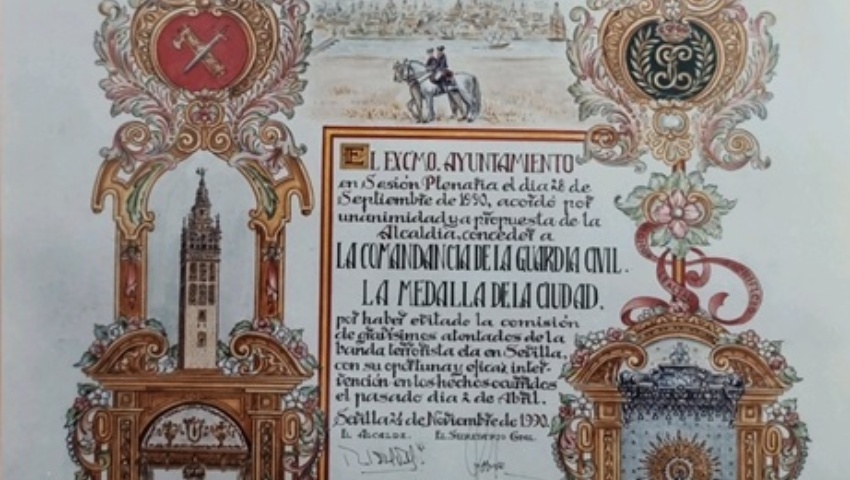 EL EXCMO. AYUNTAMIENTO
en Sesión Plenaria el dia 28 de
Septiembre de 1990, acordó por
unanimidad y a propuesta de la
Alcaldia, conceder a
LA COMANDANCIA DE LA GUARDIA CIVIL.
LA MEDALLA DE LA CIUDAD.
por haber evitado la comisión
de gravisimos atentados de la
banda terrorista eta en Sevilla,
con su oportuna y eficaz inter-
vención en los hechos ocurridos
el pasado dia 2 de Abril.
Sevilla 24 de Noviembre de 1990.
EL ALCALDE. EL SECRETARIO GRAL.